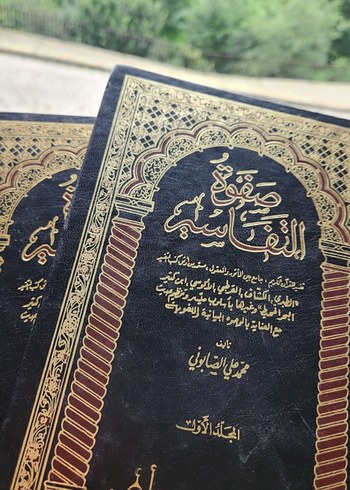 صفوة
التفاسير
تفسير للقرآن الكريم، جامع بين المأثور والمعقول، مستمد من أوثق كتب التفسير
«الطبري، الكشاف، القرطبي، الألوسي، ابن كثير
البحر المحيط» وغيرها بأسلوب ميسر وتنظيم حديث
مع العناية بالوجوه البيانية واللغوية
تأليف
محمد علي الصابوني
المجلد الأول